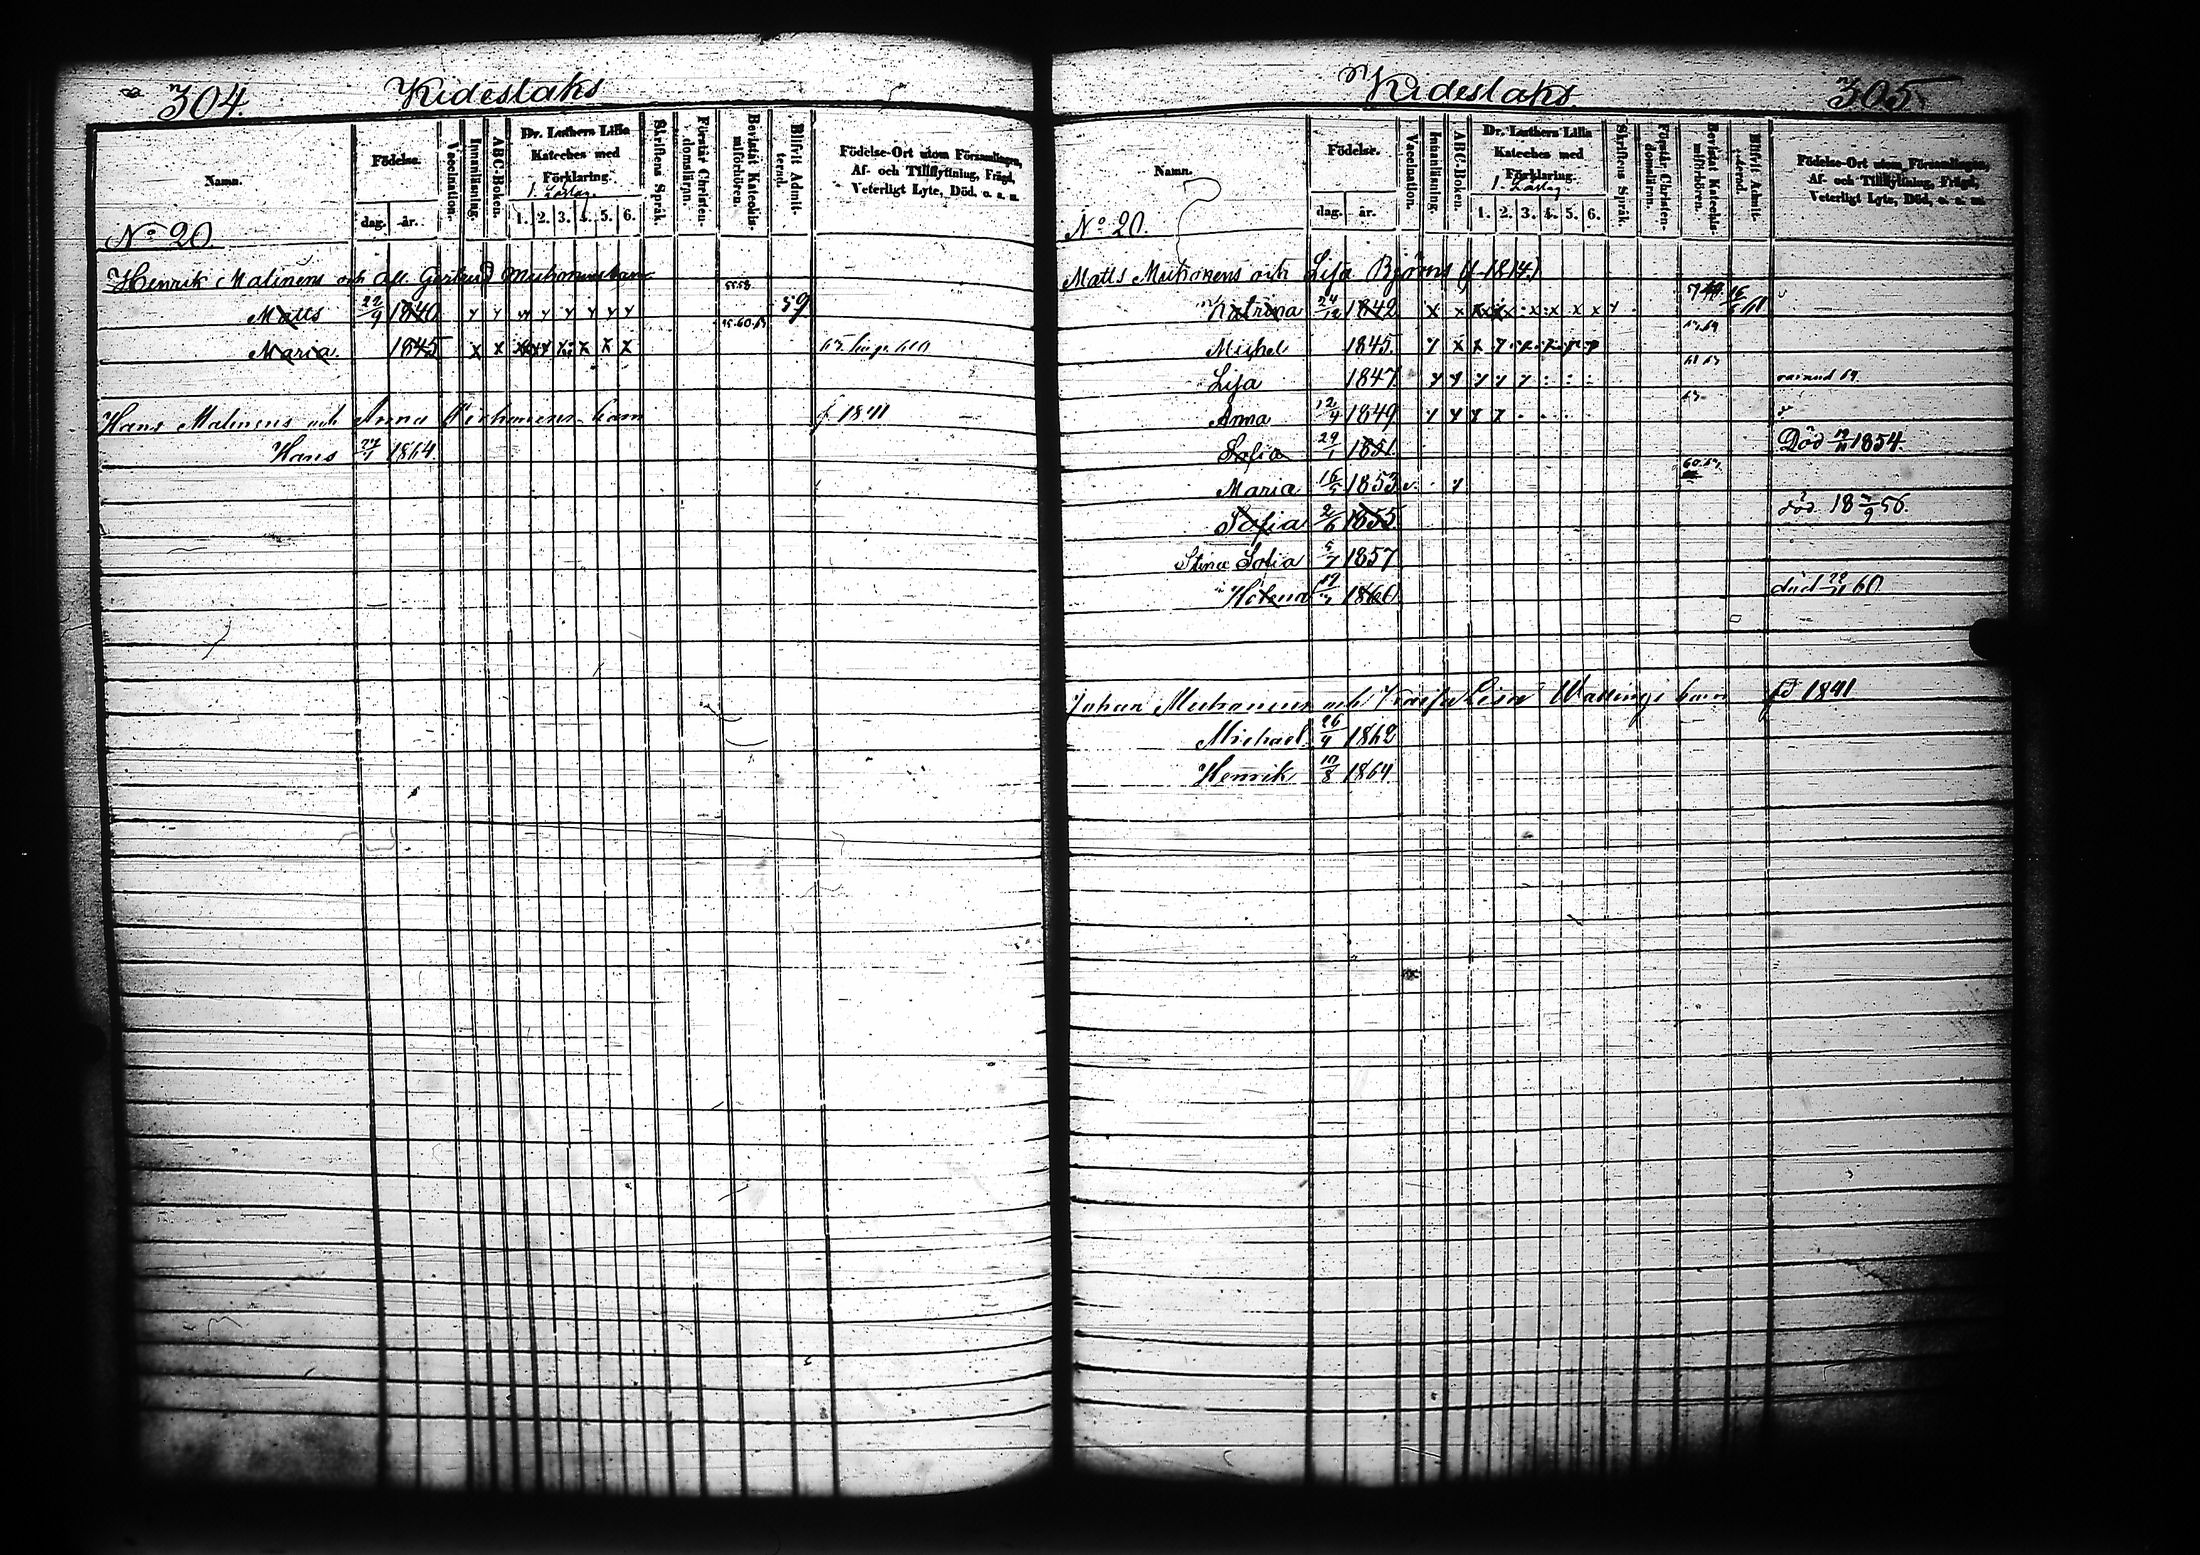 304. Kideslaks
Namn. Födelse. dag. år. Vaccination. Innanläsning. ABC-Boken. Dr. Luthers Lilla Kateches med Förklaring. 1. 2. 3. 4. 5. 6. Skriftens Språk. Förstår Christendomslärnn. Bevistat Katechismiförhören. Blifvit Admitterad. Födelse-Ort utom Församlingen, Af- och Tillflyttning, Frägd, Veterligt Lyte, Död, o. s. m.
No 20.
Henrik Malinens och afl. Gertrud Muhonens barn
55.58.
Matts 22/9 1840 59
Maria. 1845
Hans Malinens och Anna barn f 1841
Hans 1864
Kideslaks. 305
Namn. Födelse. dag. år. Vaccination. Innanläsning. ABC-Boken. Dr. Luthers Lilla Kateches med Förklaring. 1. 2. 3. 4. 5. 6. Skriftens Språk. Förstår Christendomslärnn. Bevistat Katechismiförhören. Blifvit Admitterad. Födelse-Ort utom Församlingen, Af- och Tillflyttning, Frägd, Veterligt Lyte, Död, o. s. m.
No 20.
Matts Muhonens och Lisa Björns (f. 1814)
Katrina 24/12 1842
Michel 1845.
Lisa 1847
Anna 12/4 1849
Sofia 29/1 1851. Död 1854.
Maria 16/5 1853
Sofia 2/6 1855 död 18 56.
Stina Sofia 5/7 1857
Helena 1860 död 60
Johan Muhonens och Kaisa Lisa barn fd 1841
Michael 26/9 1862
Henrik 10/8 1864